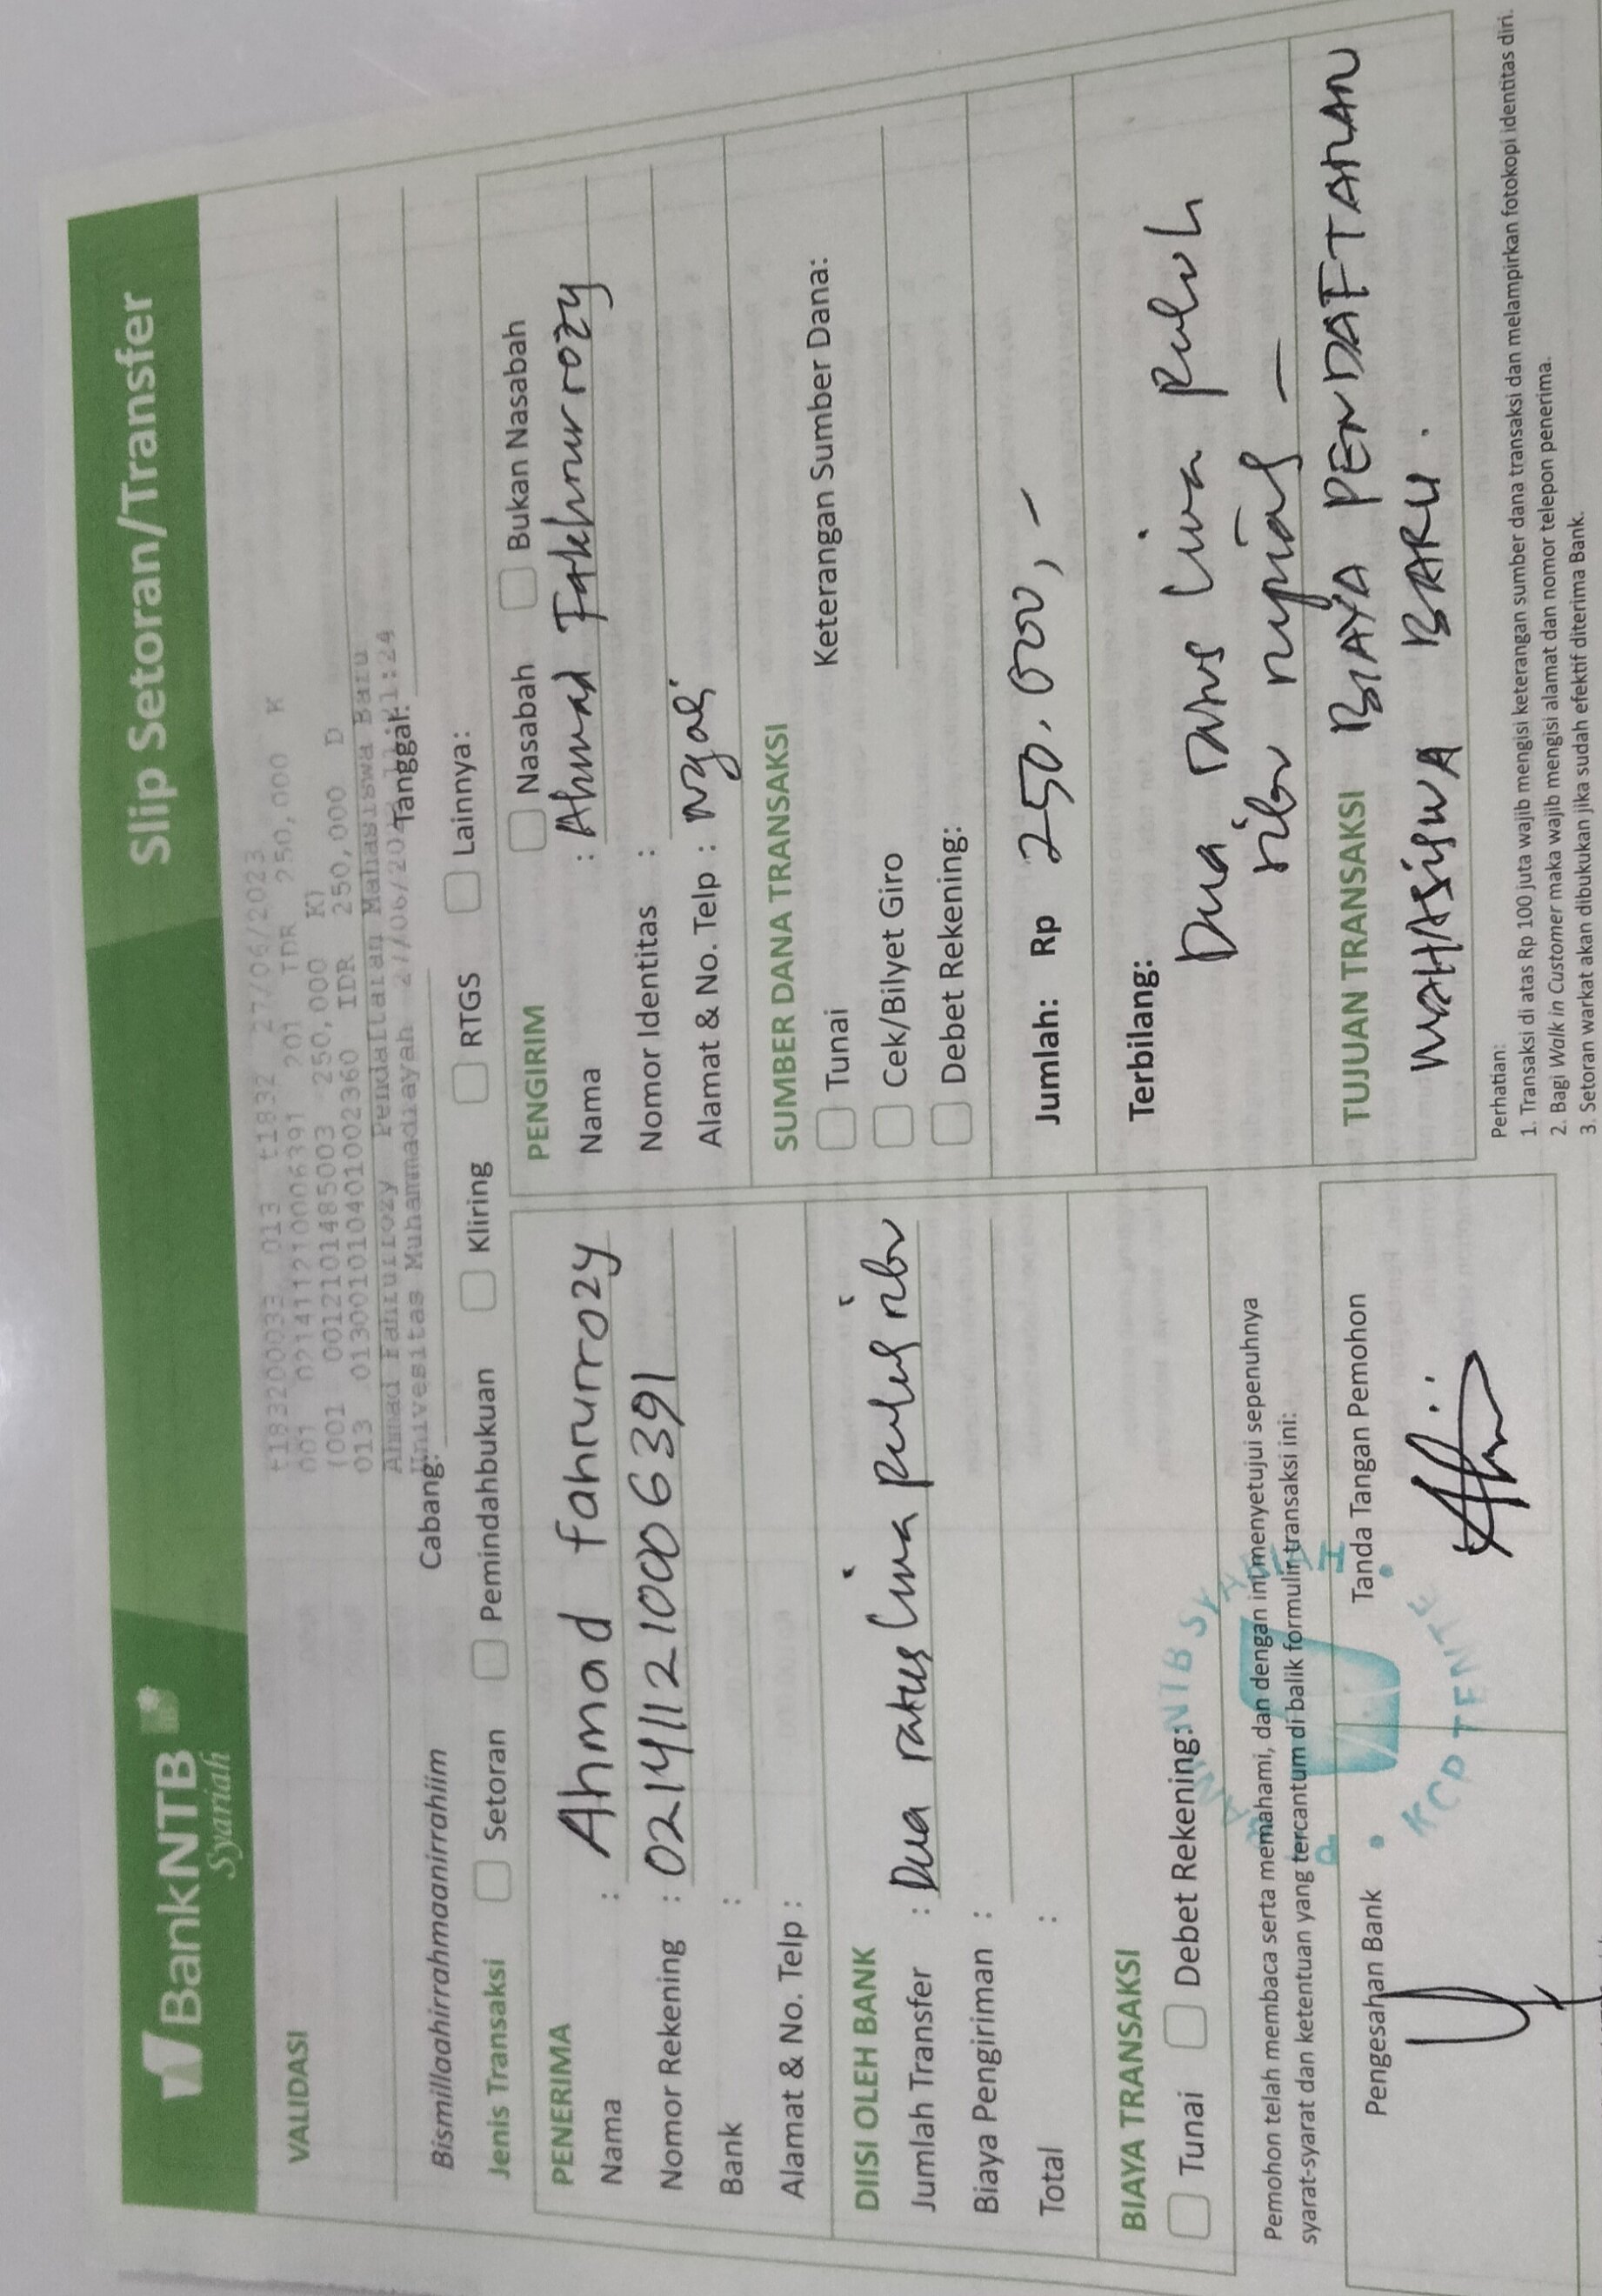 BankNTB
Syariah
Slip Setoran/Transfer
VALIDASI
t183200033 013 t1832 27/06/2023
001 0214112100006391 201 IDR 250,000 K
(001 0012101485003 250,000 K)
013 0130010104010002360 IDR 250,000 D
Ahmad Fahrurrozy Pendaftaran Mahasiswa Baru
Univesitas Muhammadiayah 27/06/202 11:24
Bismillaahirrahmaanirrahiim
Cabang:
Tanggal:
Jenis Transaksi
Setoran
Pemindahbukuan
Kliring
RTGS
Lainnya:
PENERIMA
Nama : Ahmad fahrurrozy
Nomor Rekening : 0214112100006391
Bank :
Alamat & No. Telp :
DIISI OLEH BANK
Jumlah Transfer : Dua ratus lima puluh ribu
Biaya Pengiriman :
Total :
BIAYA TRANSAKSI
Tunai
Debet Rekening:
Pemohon telah membaca serta memahami, dan dengan ini menyetujui sepenuhnya
syarat-syarat dan ketentuan yang tercantum di balik formulir transaksi ini:
Pengesahan Bank
Tanda Tangan Pemohon
NTB SYA
KCP TENTE
PENGIRIM
Nasabah
Bukan Nasabah
Nama : Ahmad Fakhrurrozy
Nomor Identitas :
Alamat & No. Telp : Ngali
SUMBER DANA TRANSAKSI
Tunai
Keterangan Sumber Dana:
Cek/Bilyet Giro
Debet Rekening:
Jumlah: Rp 250.000,-
Terbilang:
Dua ratus lima puluh
ribu rupiah
TUJUAN TRANSAKSI BIAYA PENDAFTARAN
MAHASISWA BARU.
Perhatian:
1. Transaksi di atas Rp 100 juta wajib mengisi keterangan sumber dana transaksi dan melampirkan fotokopi identitas diri.
2. Bagi Walk in Customer maka wajib mengisi alamat dan nomor telepon penerima.
3. Setoran warkat akan dibukukan jika sudah efektif diterima Bank.